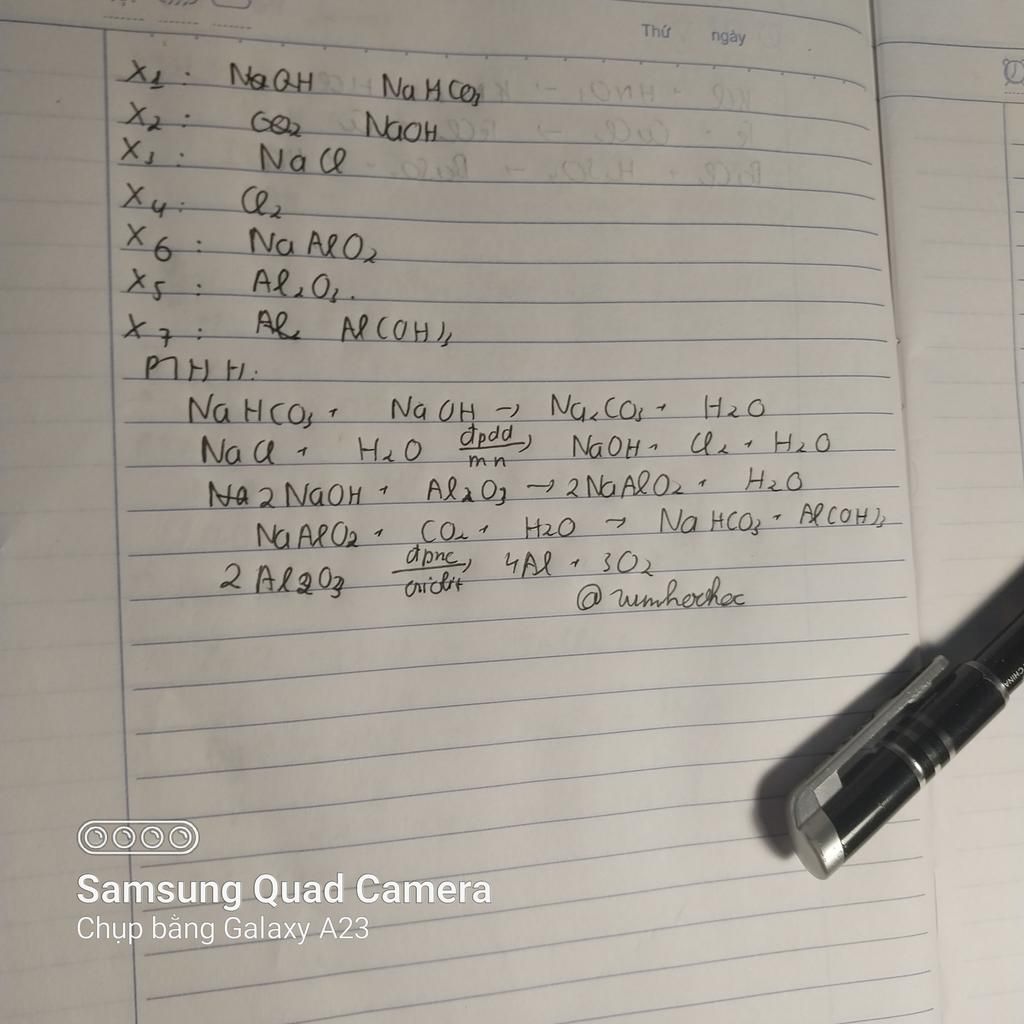 Thứ ngày
X1: NaOH NaHCO3
X2: CO2 NaOH
X3: NaCl
X4: Cl2
X6: NaAlO2
X5: Al2O3.
X7: Al Al(OH)3
PTHH:
NaHCO3 + NaOH → Na2CO3 + H2O
NaCl + H2O đpdd/mn → NaOH + Cl2 + H2O
Na 2NaOH + Al2O3 → 2NaAlO2 + H2O
NaAlO2 + CO2 + H2O → NaHCO3 + Al(OH)3
2Al2O3 đpnc/criolit → 4Al + 3O2
CHINA
Samsung Quad Camera
Chụp bằng Galaxy A23